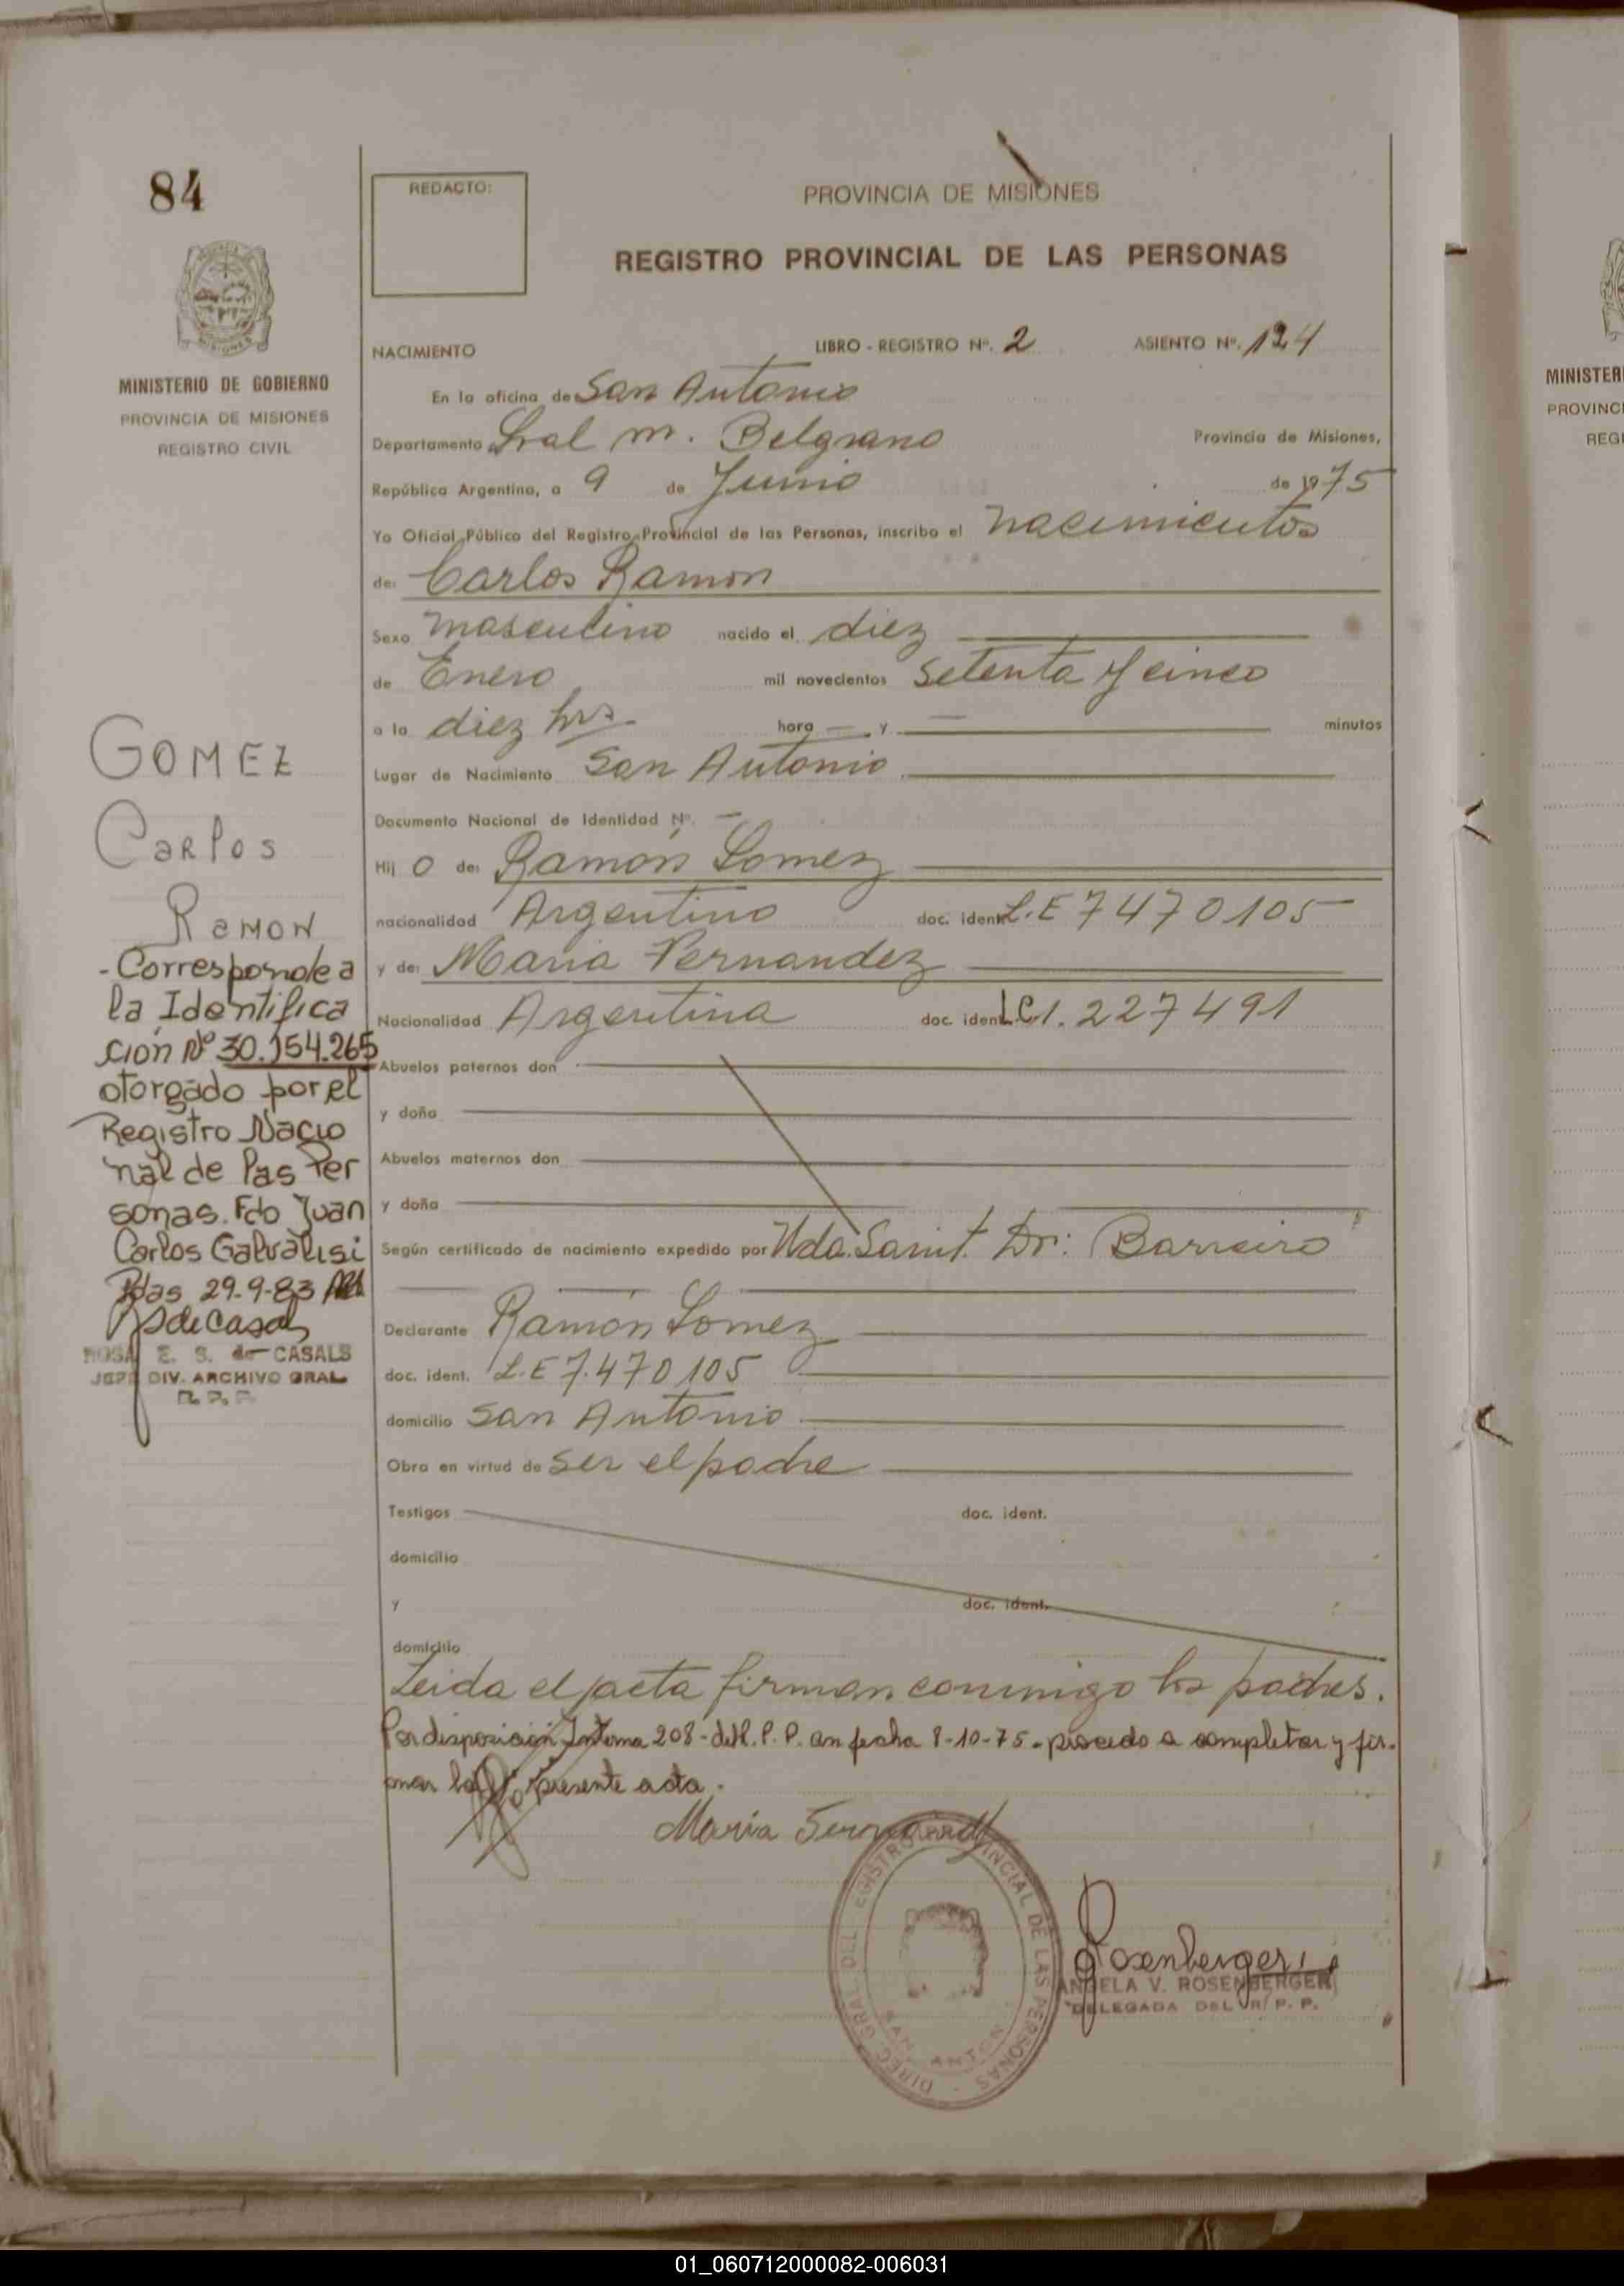 84
REDACTO:
PROVINCIA DE MISIONES
REGISTRO PROVINCIAL DE LAS PERSONAS
MINISTERIO DE GOBIERNO
PROVINCIA DE MISIONES
REGISTRO CIVIL
NACIMIENTO LIBRO - REGISTRO Nº. 2 ASIENTO Nº. 124
En la oficina de San Antonio
Departamento Gral M. Belgrano Provincia de Misiones,
República Argentina, a 9 de Junio de 1975
Yo Oficial Público del Registro Provincial de las Personas, inscribo el nacimientos
de: Carlos Ramon
Sexo masculino nacido el diez
de Enero mil novecientos setenta y cinco
a la diez hrs. hora — y — minutos
Lugar de Nacimiento San Antonio
Documento Nacional de Identidad Nº. —
Hij o de: Ramón Gomez
nacionalidad Argentino doc. ident. L.E 7470105
y de: Maria Fernandez
Nacionalidad Argentina doc. ident. LC 1.227491
Abuelos paternos don
y doña
Abuelos maternos don
y doña
Según certificado de nacimiento expedido por Uda. Sanit. Dr: Barreiro
Declarante Ramón Gomez
doc. ident. L.E 7.470105
domicilio San Antonio
Obra en virtud de ser el padre
Testigos doc. ident.
domicilio
y doc. ident.
domicilio
Leida el acta firman conmigo los padres.
Por disposición Interna 208 - del R. P. P. en fecha 8-10-75 - procedo a completar y fir-
mar la presente acta.
Maria Fernandez
Rosenberger
ANGELA V. ROSENBERGER
DELEGADA DEL R. P. P.
DIREC. GRAL DEL REGISTRO PROVINCIAL DE LAS PERSONAS -
SAN ANTON
GOMEZ
Carlos
Ramon
- Corresponde a
la Identifica
ción Nº 30.154.265
otorgado por el
Registro Nacio
nal de las Per
sonas. Fdo Juan
Carlos Galvalisi
Pdas 29-9-83
RSdeCasals
ROSA E. S. de CASALS
JEFE DIV. ARCHIVO GRAL
R. P. P.
MINISTERI
PROVINCI
REGI
01_060712000082-006031